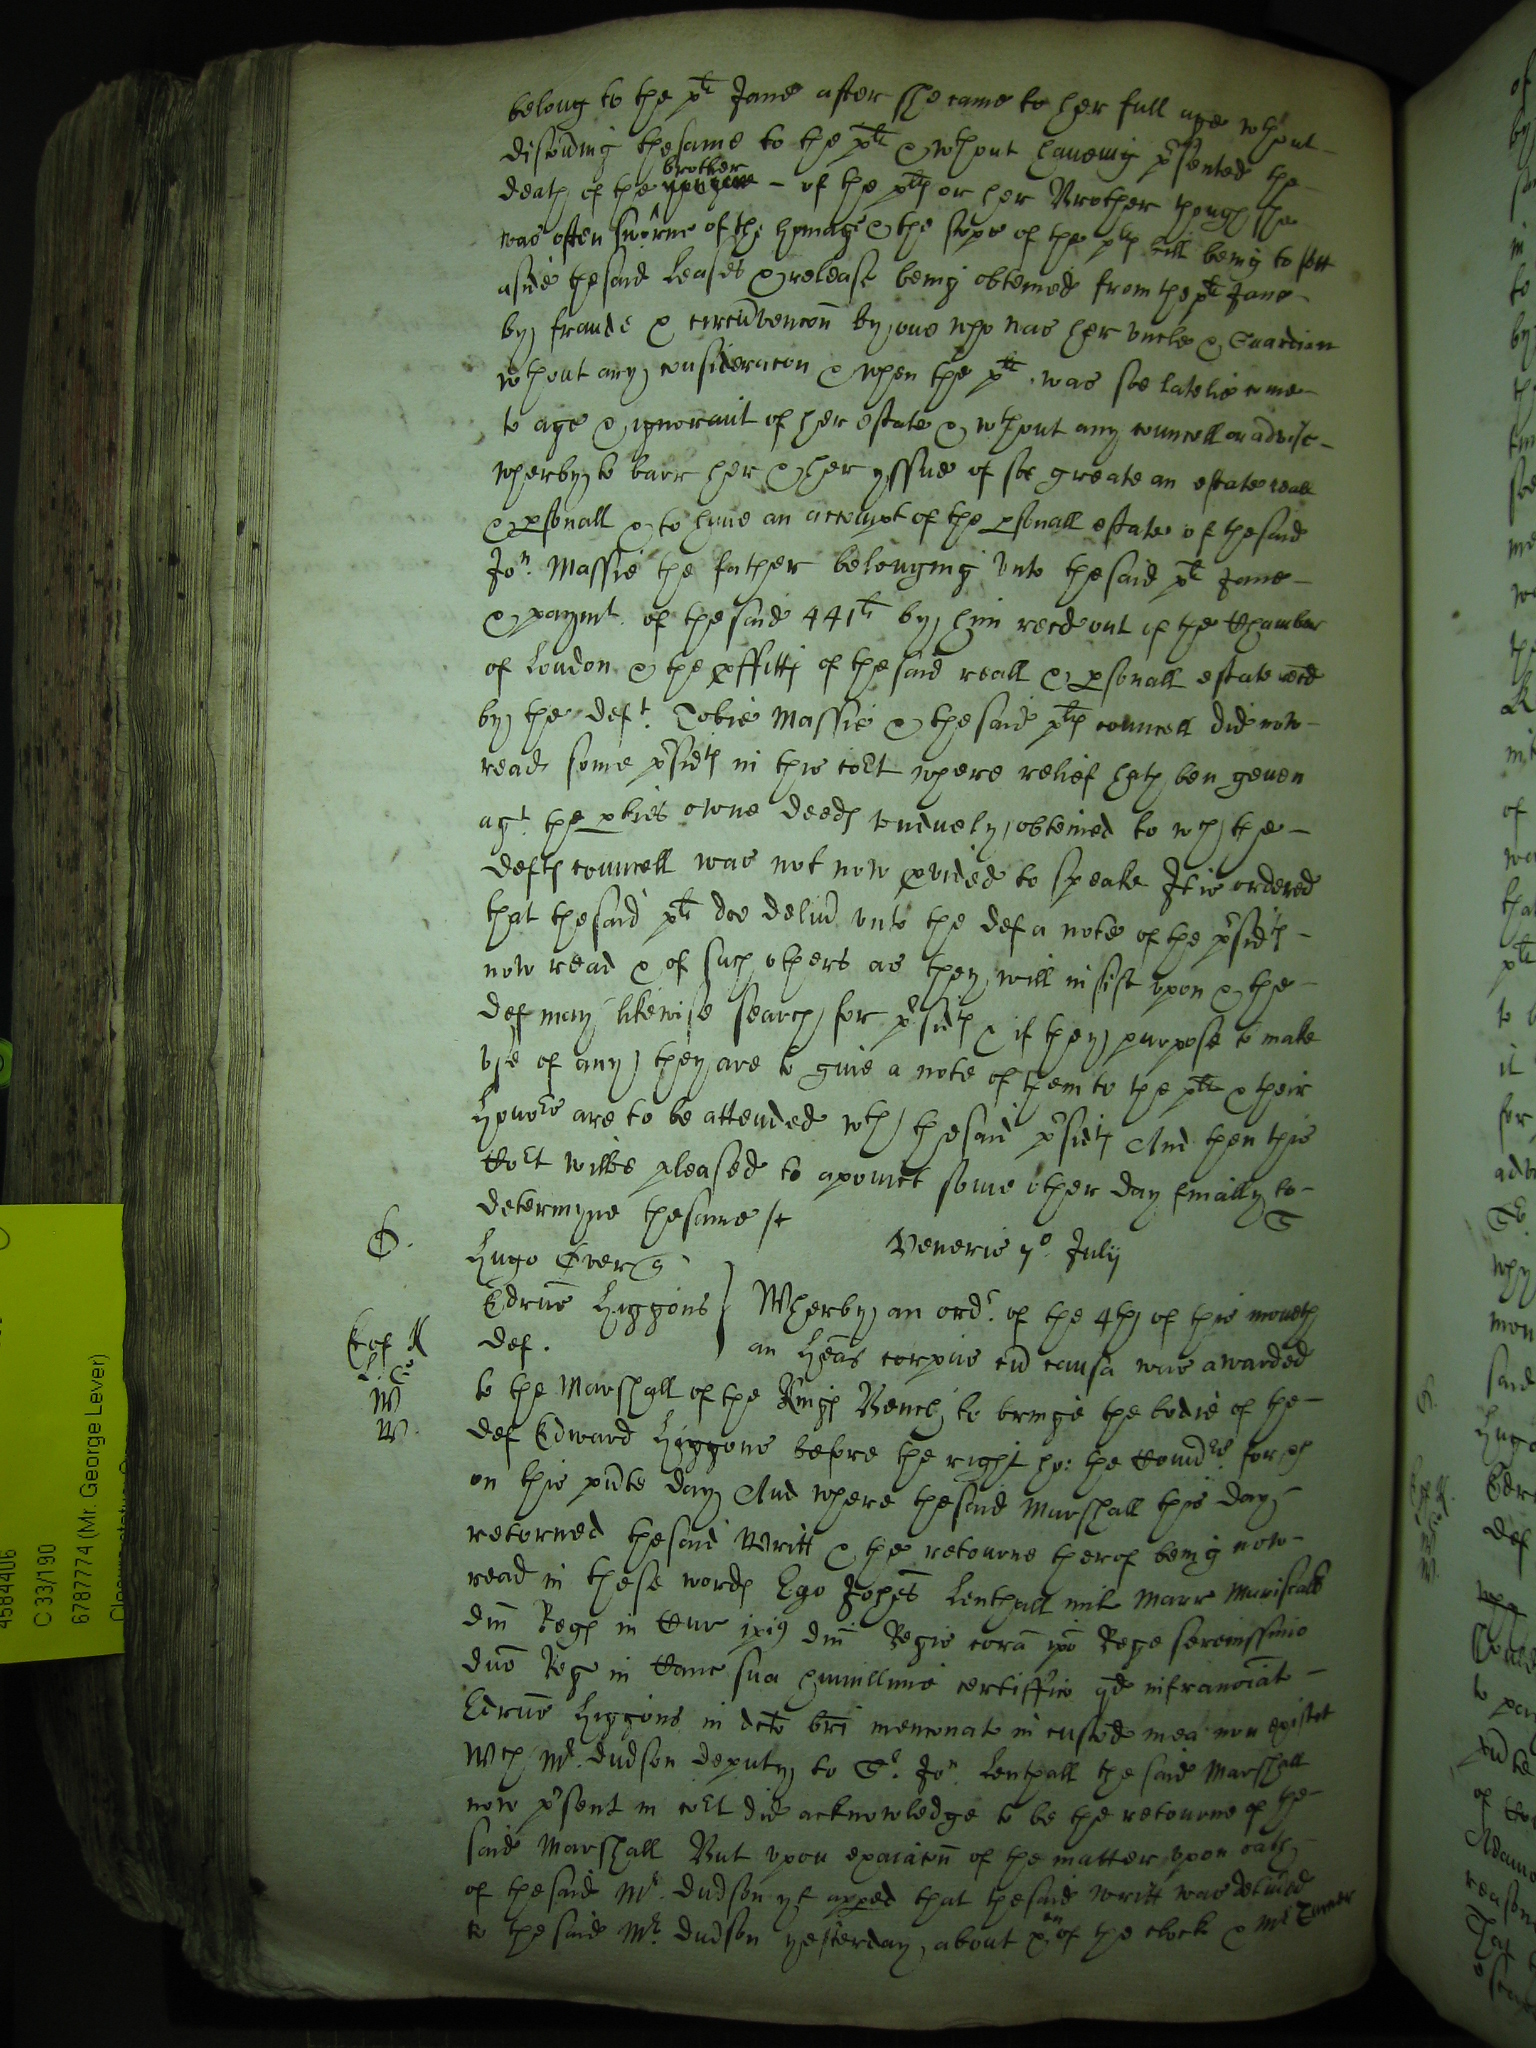 belong to the plt Jane after she came to her full age wthout
discouning the same to the plt & wthout haveing psented the
death of the brother of the plts or her Brother though he
was often sworne of the homage & the scope of the plts bill being to sett
aside the said Leases & release being obteined from the plt Jane
by fraude & circuvencon by one who was her uncle & Guardian
wthout any consideracon & when the plt was soe latelie come
to age & ignorant of her estate & wthout any councell or advise
wherby to barr her & her yssue of soe greate an estate reall
& psonall & to have an accompt of the psonall estate of the said
Jon. Massie the father belonging unto the said plt Jane
& paymt. of the said 441li by him recd out of the Chamber
of London & the pffitts of the said reall & psonall estate recd
by the deft. Tobie Massie & the said plts councell did now
read some psidts in this cort where relief hath ben geven
agt. the pties owne deeds unduely obteined to wch the
defts councell was not now pvided to speake It is ordered
that the said plt doe deliu unto the def a note of the psidts
now read & of such others as they will insist upon & the
def may likewise search for psidts & if they purpose to make
use of any they are to give a note of them to the plt & their
Honors are to be attended wth the said psidts And then this
Cort wilbe pleased to apoinct some other day finally to
determyne the same
Veneris 7o. Julij
Hugo Ever q
Edrus Higgons
def.
Wherby an ordr. of the 4th of this moneth
an Heas corpus cu causa was awarded
to the Marshall of the Kings Bench to bringe the bodie of the
def Edward Higgons before the right ho: the Comdrs for
on this pnte day And where the said Marshall this day
retorned the said Writt & the retourne therof being now
read in these words Ego Johes Lenthall mil Marr Mariscall
dni Regs in Cur ipius dni Regis cora ipo Rege serenissimo
dno Rege in Canc sua humillime certiffico qd infranoiat
Edrus Higgons in dcto bri menconat in custod mea non existet
Wch Mr. Dudson deputy to Sr. Jon. Lenthall the said Marshall
now psent in cort did acknowledge to be the retourne of the
said Marshall But upon exaiacon of the matter upon oath
of the said Mr. Dudson yt apped that the said writt was deliued
to the said Mr. Dudson yesterday about of the clock & Mr Turner
4584406
C 33/190
6787774 (Mr. George Lever)